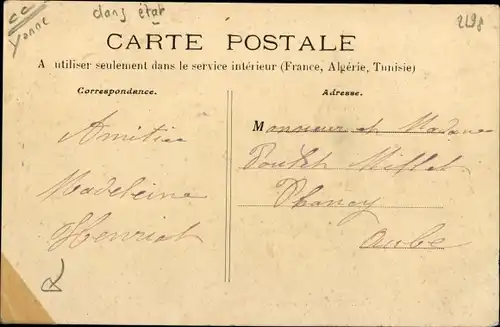 CC
Yonne
dans état
2498
CARTE POSTALE
A utiliser seulement dans le service intérieur (France, Algérie, Tunisie)
Correspondance.
Adresse.
Amitiés
Madeleine
Henriot
Monsieur et Madame
Millot
Chancy
Aube